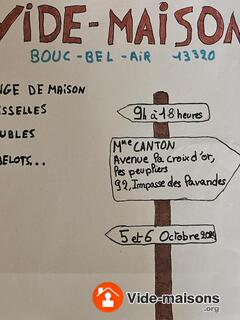 VIDE-MAISON
BOUC-BEL-AIR 13320
NGE DE MAISON
ISSELLES
UBLES
BELOTS...
9h à 18 heures
Mme CANTON
Avenue La croix d'or,
Les peupliers
92, Impasse des Lavandes
5 et 6 Octobre
Vide-maisons
.org